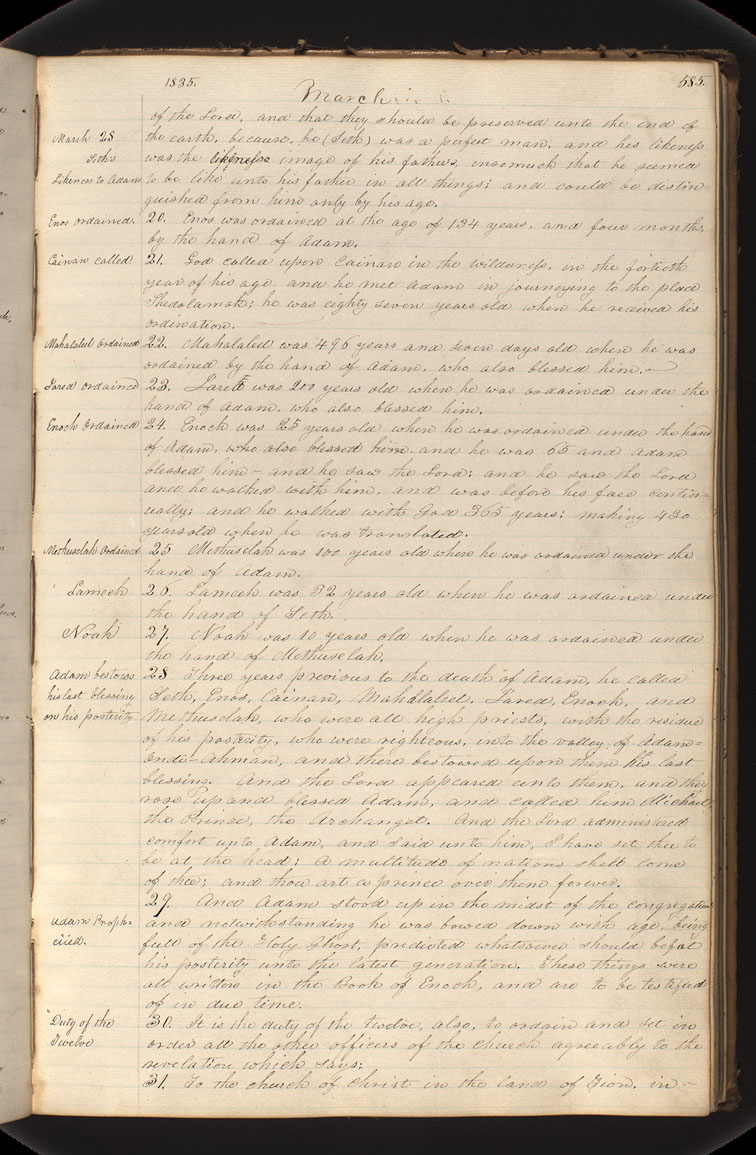 1835.
March
585.
of the Lord, and that they should be preserved unto the end of
March 28
the earth, because, he (Seth) was a perfect man, and his likeness
Seths
was the likeness image of his fathers, insomuch that he seemed
Likeness to Adam
to be like unto his father in all things; and could be distin=
guished from him only by his age.
Enos ordained.
20. Enos was ordained at the age of 134 years, and four months,
by the hand of Adam.
Cainan called
21. God called upon Cainan in the wilderness, in the fortieth
year of his age, and he met Adam in journeying to the place
Shedolamak; he was eighty seven years old when he received his
ordination.
Mahalaleel ordained
22. Mahalaleel was 496 years and seven days old when he was
ordained by the hand of Adam, who also blessed him.
Jared ordained
23. Jared was 200 years old when he was ordained under the
hand of Adam, who also blessed him.
Enoch Ordained
24. Enoch was 25 years old when he was ordained under the hand
of Adam, who also blessed him, and he was 65 and Adam
blessed him – and he saw the Lord: and he saw the Lord
and he walked with him, and was before his face contin=
ually; and he walked with God 365 years: making 430
years old when he was translated.
Methuselah Ordained
25 Methuselah was 100 years old when he was ordained under the
hand of Adam.
Lamech
26. Lamech was 32 years old when he was ordained under
the hand of Seth.
Noah
27. Noah was 10 years old when he was ordained under
the hand of Methuselah.
Adam bestows
28 Three years previous to the death of Adam, he called
his last blessing
Seth, Enos, Cainan, Mahalaleel, Jared, Enoch, and
on his posterity
Methuselah, who were all high priests, with the residue
of his posterity, who were righteous, into the valley of Adam=
Ondi-Ahman, and there bestowed upon them his last
blessing. And the Lord appeared unto them, and they
rose up and blessed Adam, and called him Michael,
the Prince, the Archangel. And the Lord administered
comfort unto Adam, and said unto him, I have set thee to
be at the head: A multitude of nations shall come
of thee; and thou art a prince over them forever.
29. And Adam stood up in the midst of the congregation
Adam Proph-
and notwithstanding he was bowed down with age, being
ecied.
full of the Holy Ghost, predicted whatsoever should befal
his posterity unto the latest generation. These things were
all written in the Book of Enoch, and are to be testified
of in due time.
Duty of the
30. It is the duty of the twelve, also, to ordain and set in
Twelve
order all the other officers of the church agreeably to the
revelation which says:
31. To the church of Christ in the land of Zion, in-